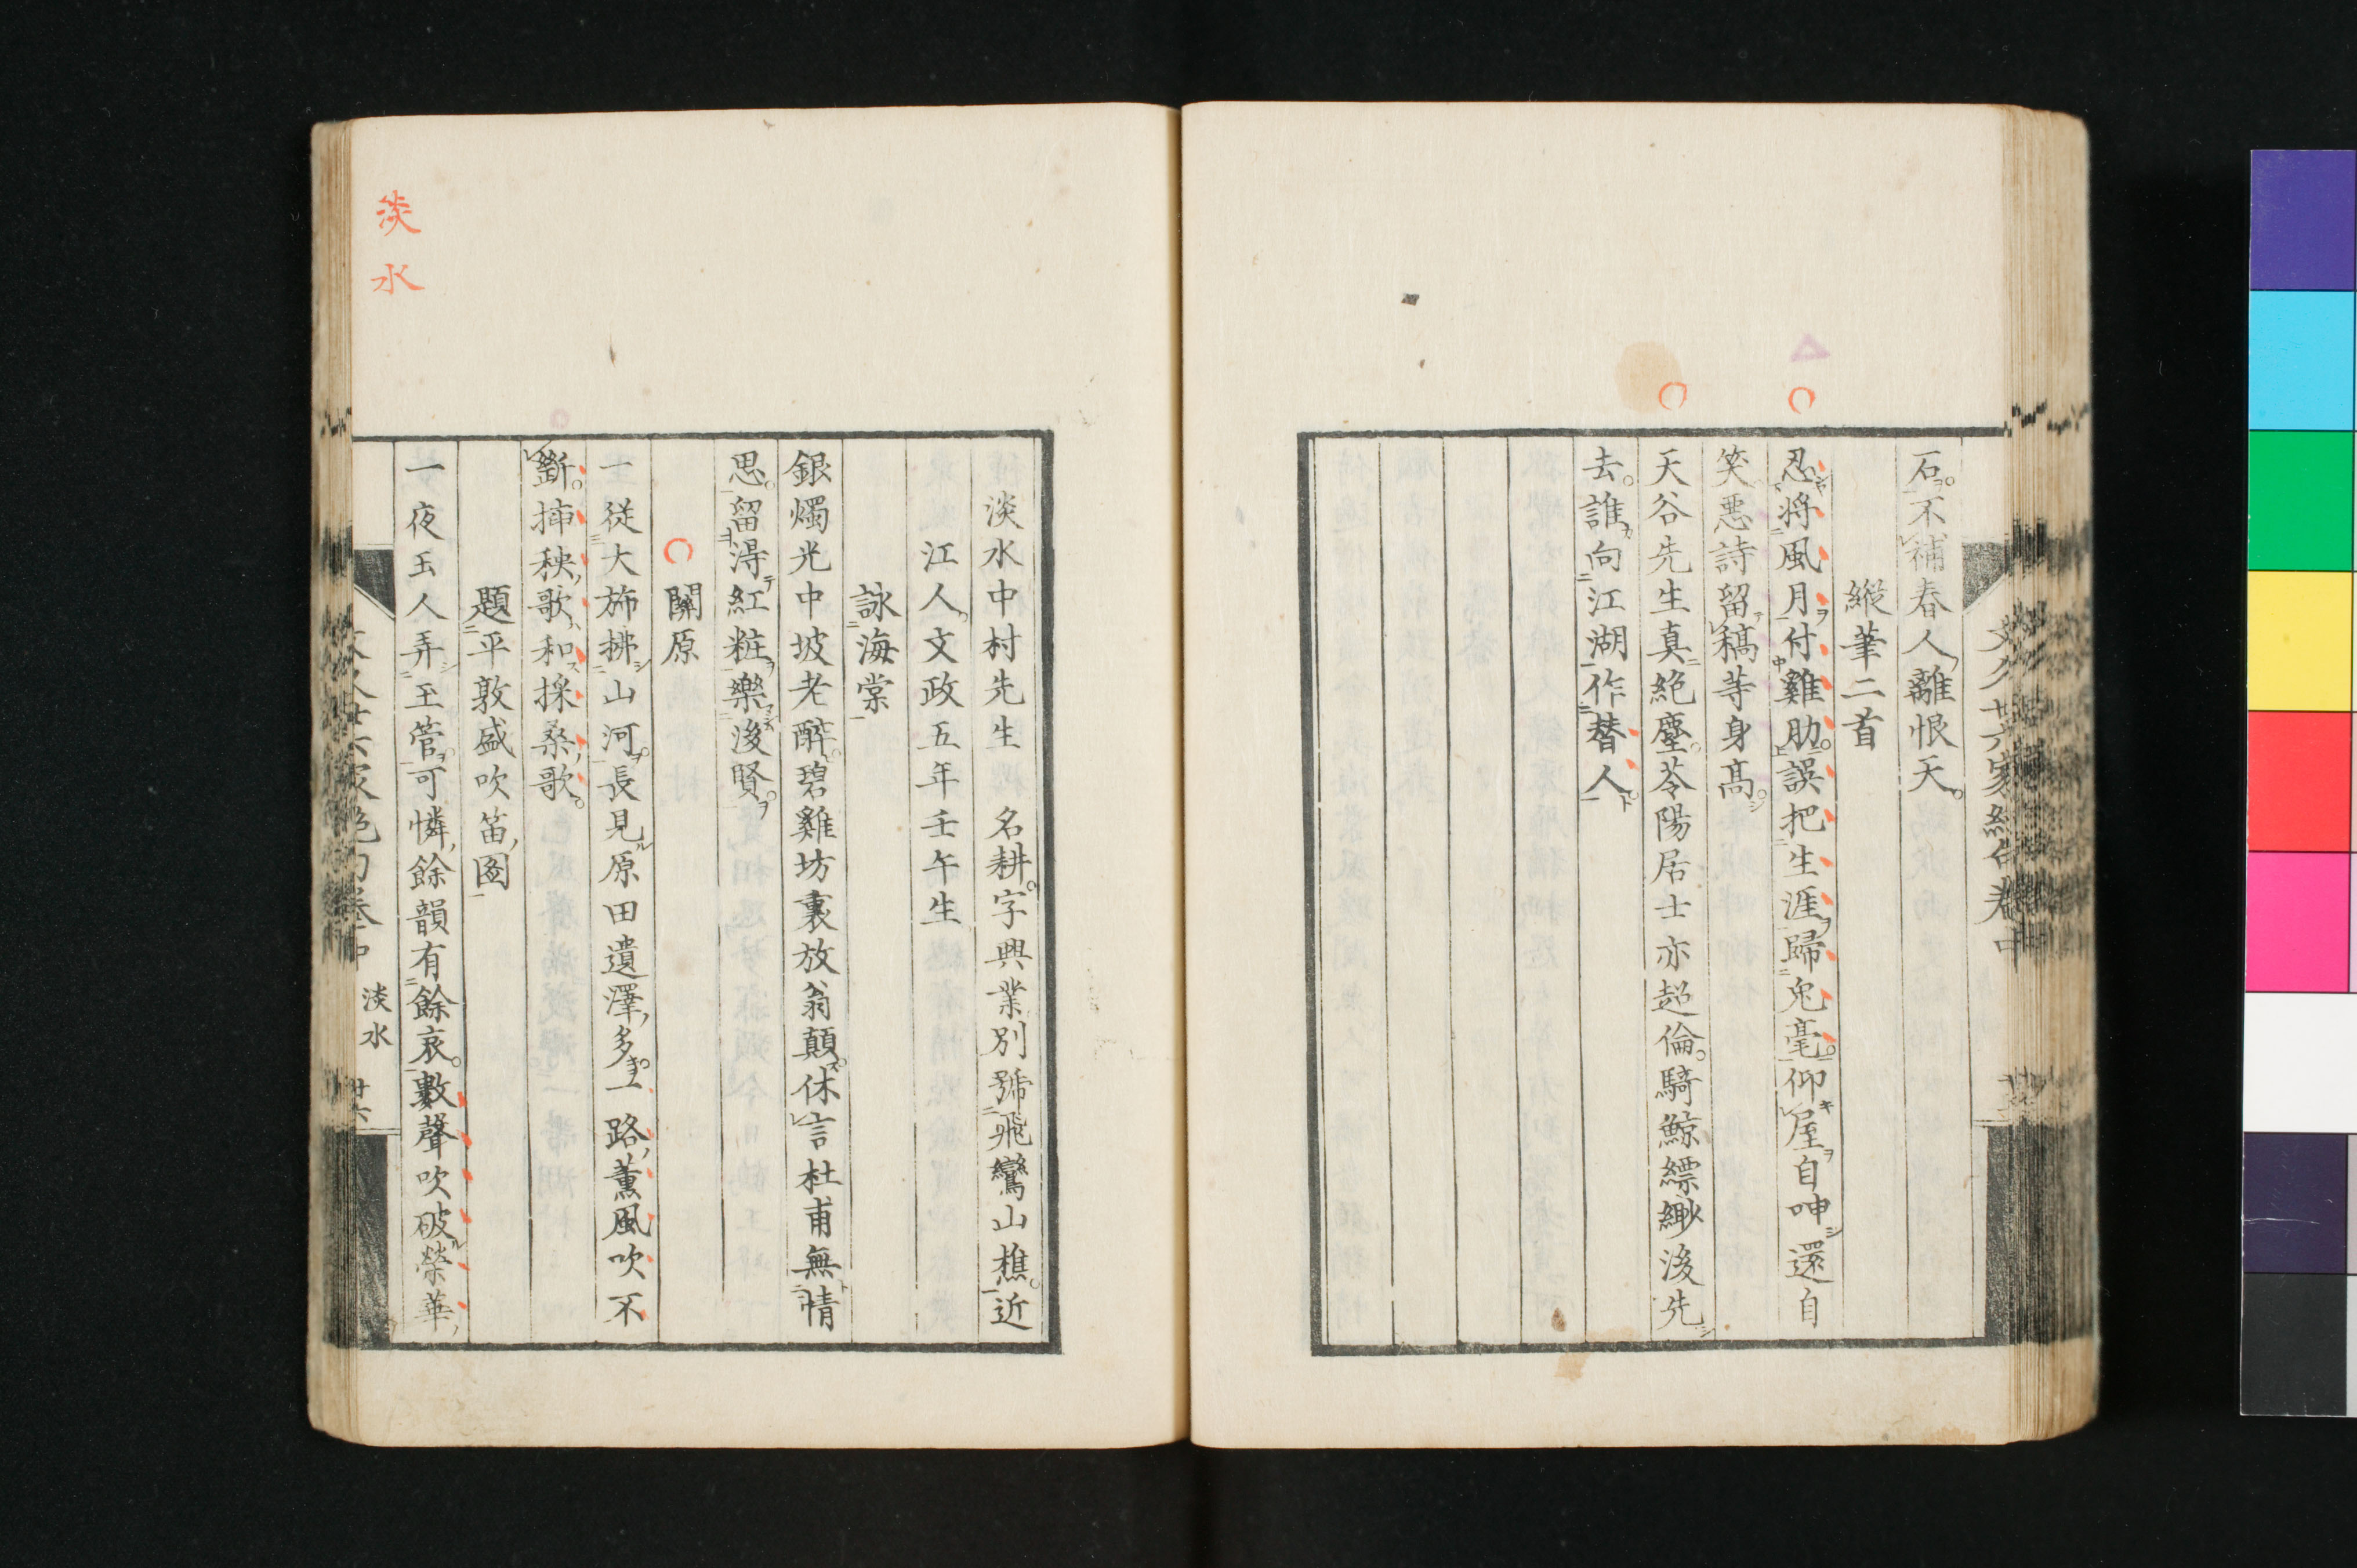 石不補春人離恨天
縱筆二首
忍将風月付雞肋誤把生涯歸兎毫仰屋自呻還自
笑悪詩留稿等身髙
天谷先生真絶塵苓陽居士亦超倫騎鯨縹緲後先
去誰向江湖作替人
淡水中村先生 名耕字興業別號飛鸞山樵近
江人文政五年壬午生
詠海棠
銀燭光中坡老醉碧雞坊裏放翁顛休言杜甫無情
思留得紅粧樂後賢
關原
一從大旆拂山河長見原田遺澤多一路薫風吹不
斷挿秧歌和採桑歌
題平敦盛吹笛图
一夜玉人弄玉管可憐餘韻有餘哀數聲吹破榮華
淡水
廿六
淡水